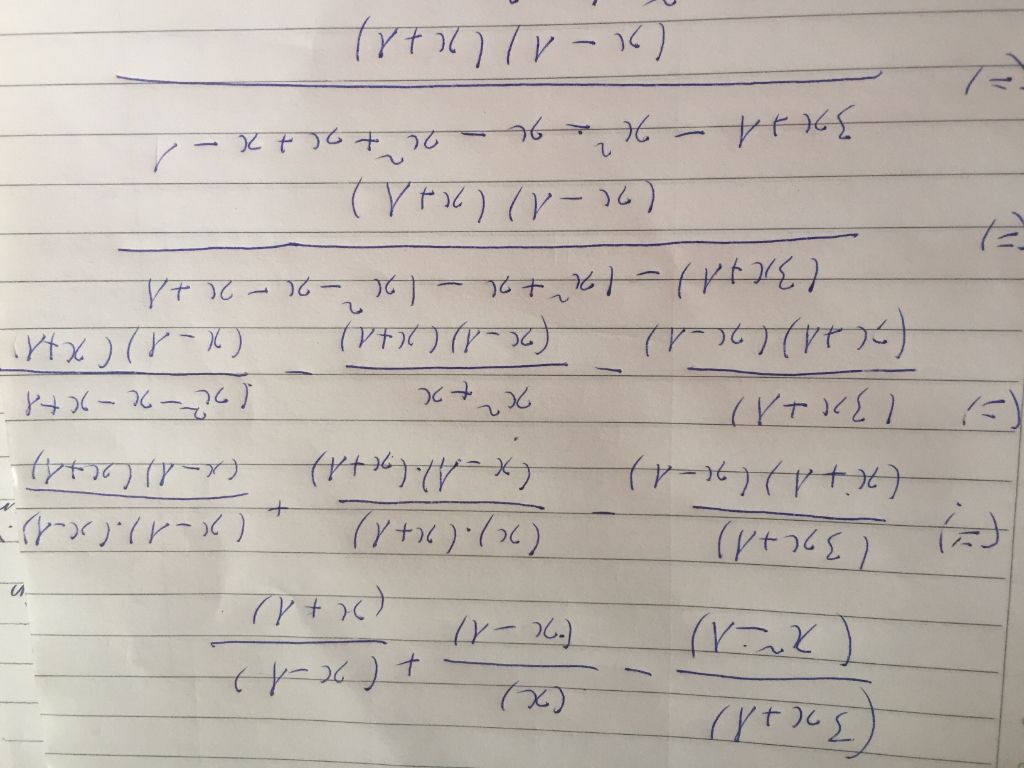 (3x+1)/(x²-1) - (x)/(x-1) + (x-1)/(x+1)
(=) (3x+1)/(x+1)(x-1) - (x).(x+1)/(x-1).(x+1) + (x-1).(x-1)/(x-1)(x+1)
(=) (3x+1)/(x+1)(x-1) - x²+x/(x-1)(x+1) - (x²-x-x+1/(x-1)(x+1)
(=) (3x+1) - (x²+x - (x²-x-x+1/(x-1)(x+1)
(=) 3x+1 - x² - x - x²+x+x-1/(x-1)(x+1)